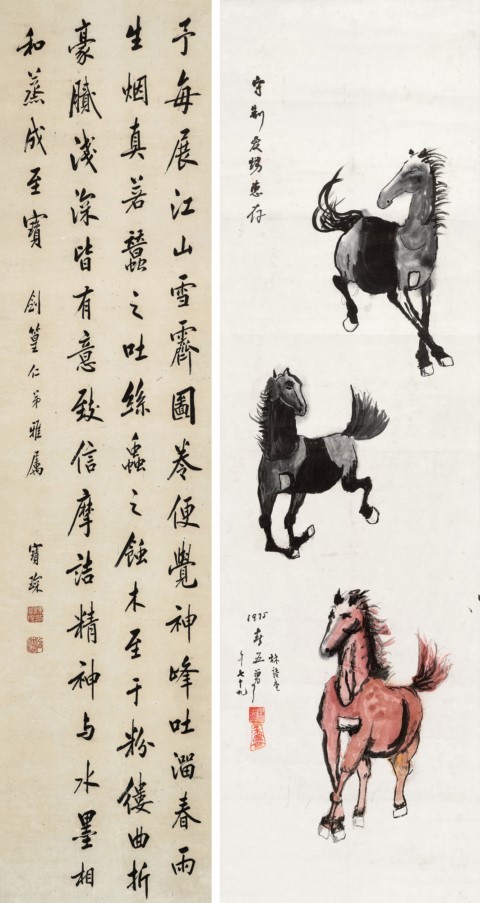 予每展江山雪霽圖卷便覺神峰吐溜春雨
生烟真若蠶之吐絲蟲之蝕木至于粉縷曲折
豪膩淺深皆有意致信摩詰精神与水墨相
和蒸成至寶
劍篁仁弟雅屬
寶琛
惠存
1975
年七十九